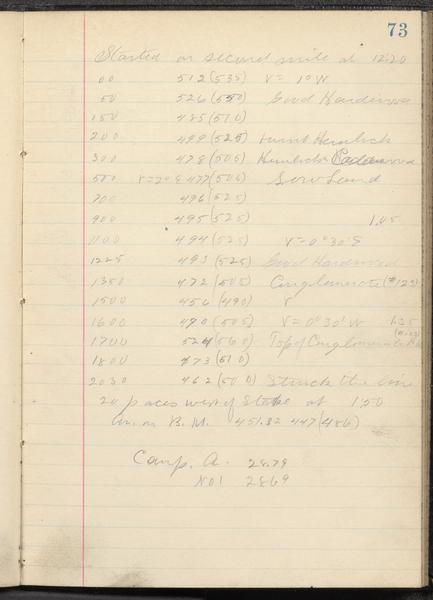 73
Started on second mile at 12:20
00 512 (535) V = 1° W
50 526 (550) Good Hardwood
150 485 (510)
200 499 (525) Hemlock
300 478 (505) Hemlock
500 V = 2° E 477 (505) Low Land
700 496 (525)
900 495 (525) 1.05
1100 494 (525) V = 0° 30' E
1225 493 (525) Good Hardwood
1350 472 (505) Conglomerate
1500 456 (490) V
1600 470 (505) V = 0° 30' W 1.35
1700 524 (560) Top of Conglomerate
1800 473 (510)
2030 462 (500) Struck the line
20 paces west of Stake at 1.50
on B.M. 451.82 447 (486)
Comp. A. 28.79
No 1 28 69